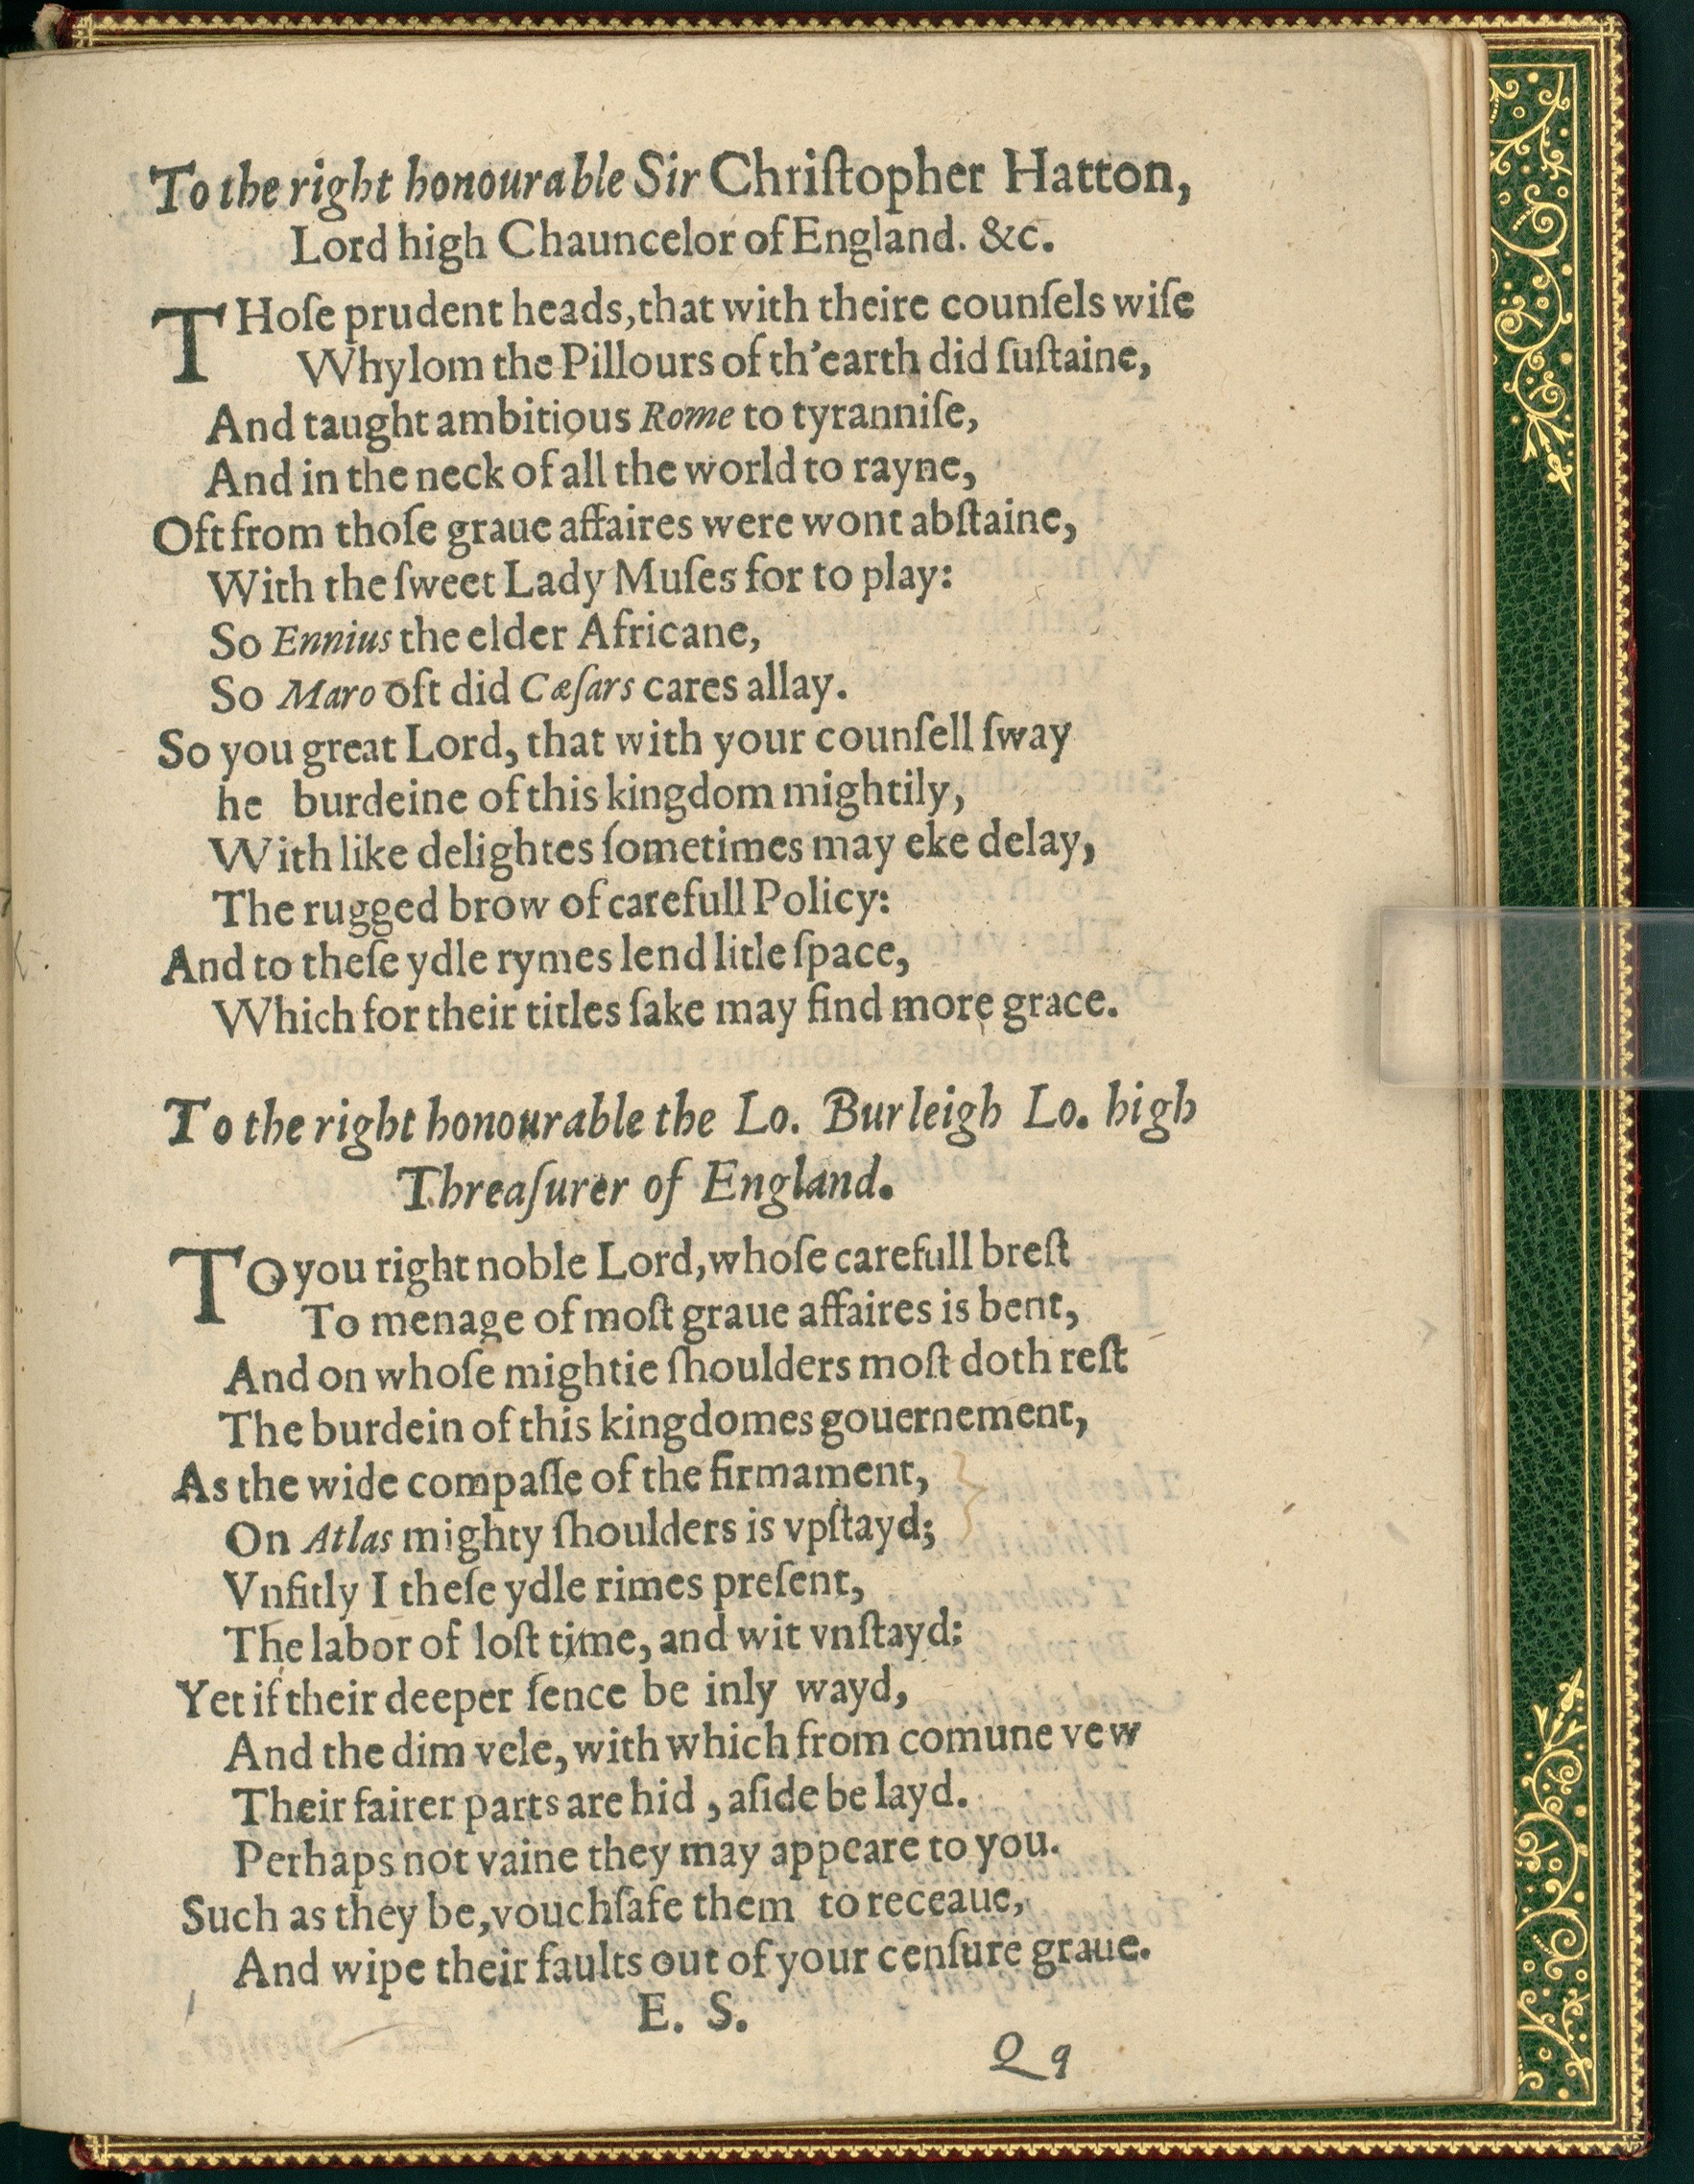 To the right honourable Sir Chriſtopher Hatton,
Lord high Chauncelor of England. &c.
THoſe prudent heads, that with theire counſels wiſe
Whylom the Pillours of th'earth did ſuſtaine,
And taught ambitious Rome to tyranniſe,
And in the neck of all the world to rayne,
Oft from thoſe graue affaires were wont abſtaine,
With the ſweet Lady Muſes for to play:
So Ennius the elder Africane,
So Maro oft did Cæſars cares allay.
So you great Lord, that with your counſell ſway
he burdeine of this kingdom mightily,
With like delightes ſometimes may eke delay,
The rugged brow of carefull Policy:
And to theſe ydle rymes lend litle ſpace,
Which for their titles ſake may find more grace.
To the right honourable the Lo. Burleigh Lo. high
Threaſurer of England.
TO you right noble Lord, whoſe carefull breſt
To menage of moſt graue affaires is bent,
And on whoſe mightie ſhoulders moſt doth reſt
The burdein of this kingdomes gouernement,
As the wide compaſſe of the firmament,
On Atlas mighty ſhoulders is vpſtayd;
Vnfitly I theſe ydle rimes preſent,
The labor of loſt time, and wit vnſtayd:
Yet if their deeper ſence be inly wayd,
And the dim vele, with which from comune vew
Their fairer parts are hid, aſide be layd.
Perhaps not vaine they may appeare to you.
Such as they be, vouchſafe them to receaue,
And wipe their faults out of your cenſure graue.
E. S.
Qq